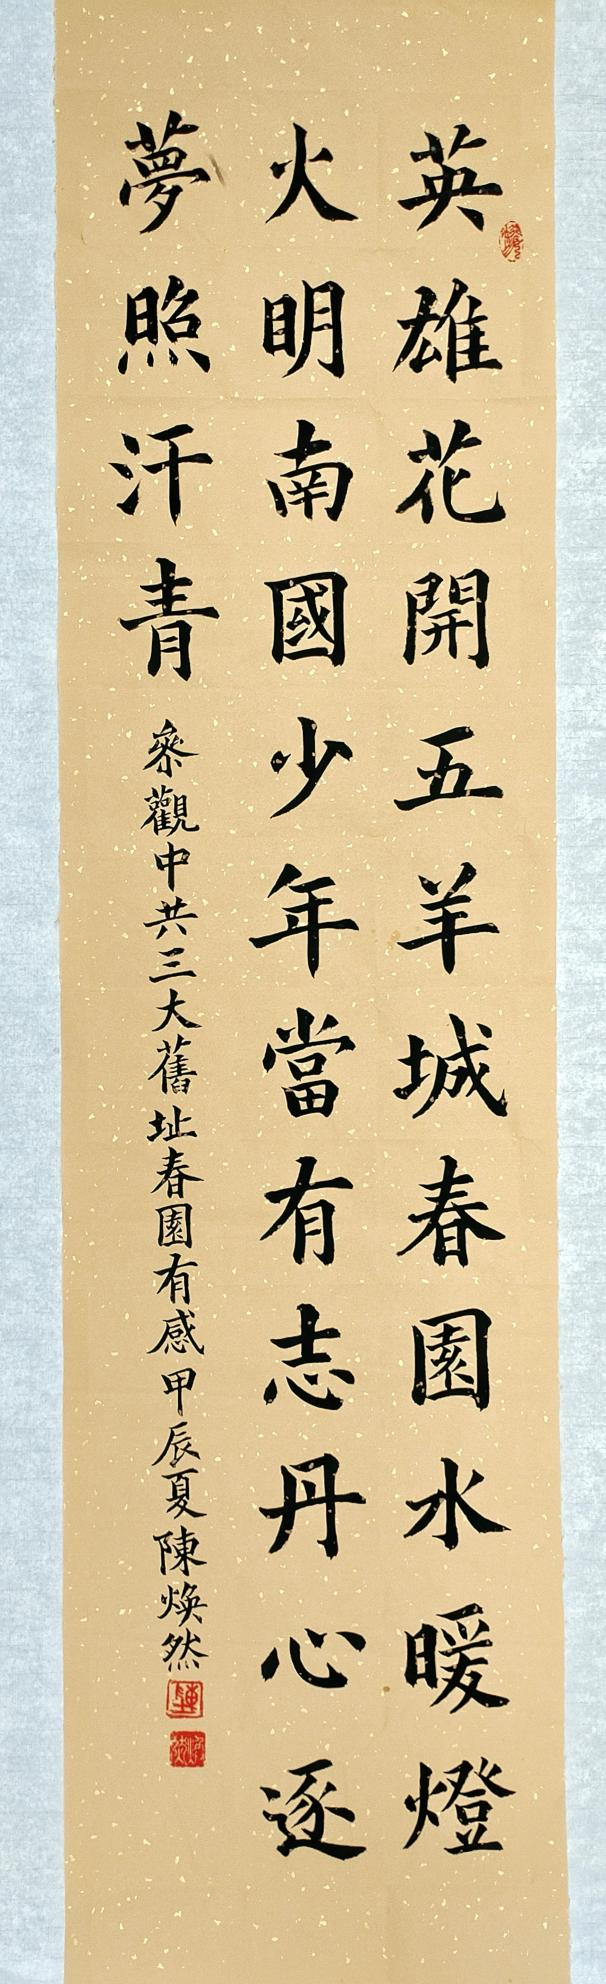 英雄花開五羊城春園水暖燈
火明南國少年當有志丹心逐
夢照汗青
參觀中共三大舊址春園有感甲辰夏陳煥然